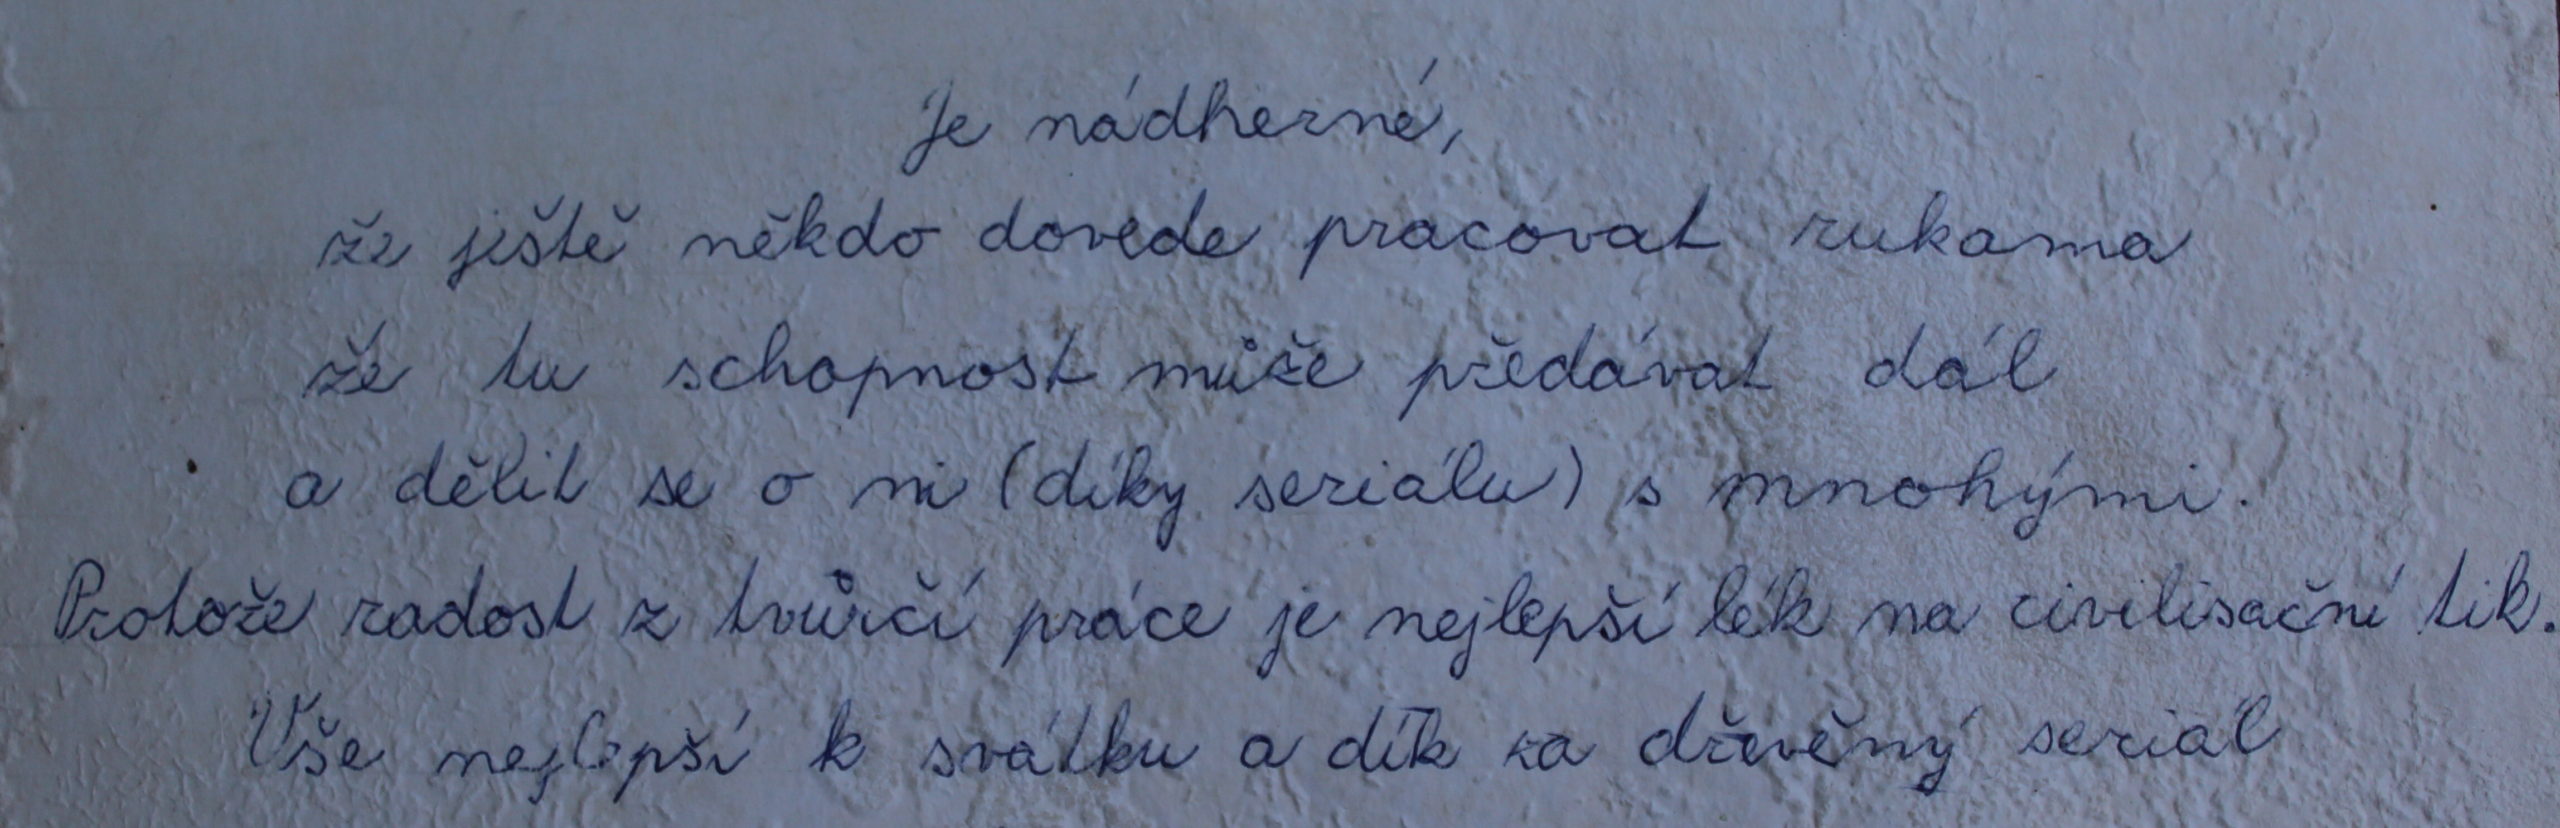 Je nádherné,
že ještě někdo dovede pracovat rukama
že tu schopnost může předávat dál
a dělit se o ni (díky seriálu) s mnohými.
Protože radost z tvůrčí práce je nejlepší lék na civilisační tik.
Vše nejlepší k svátku a dík za dřevěný seriál